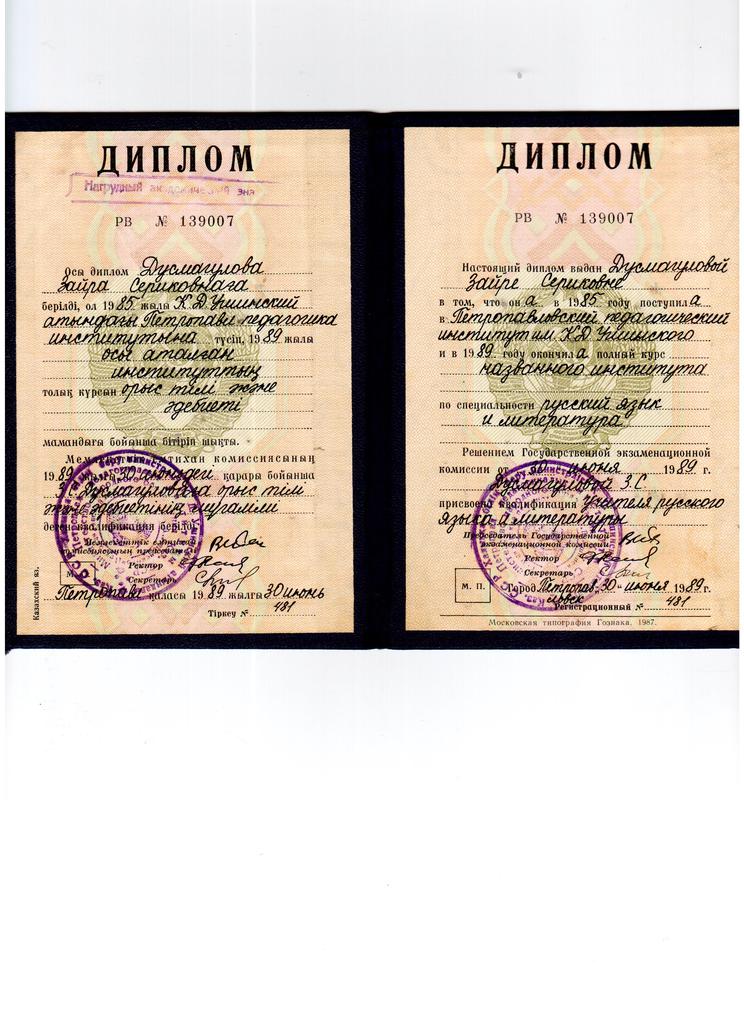 ДИПЛОМ
Нагрудный академический зна
РВ № 139007
Осы диплом Дусмагулова
Зайра Сериковнаға
берілді, ол 1985 жылы К.Д.Ушинский
атындағы Петропавл педагогика
институтына түсіп, 1989 жылы
осы аталған
институттың
толық курсын орыс тілі және
әдебиеті
мамандығы бойынша бітіріп шықты.
Мемлекеттік емтихан комиссиясының
1989 жылғы 30 июндегі қарары бойынша
Дусмагуловаға орыс тілі
және әдебиетінің мұғалімі
деген квалификация берілді
Мемлекеттік емтихан
комиссиясының председателі
Ректор
Секретарь
М.
Петропавл қаласы 1989 жылғы 30 июнь
Тіркеу № 481
Казахский яз.
ДИПЛОМ
РВ № 139007
Настоящий диплом выдан Дусмагуловой
Зайре Сериковне
в том, что она в 1985 году поступила
в Петропавловский педагогический
институт им К.Д.Ушинского
и в 1989 году окончила полный курс
названного института
по специальности русский язык
и литература
Решением Государственной экзаменационной
комиссии от 30 июня 1989 г.
Дусмагуловой З.С.
присвоена квалификация учителя русского
языка и литературы
Председатель Государственной
экзаменационной комиссии
Ректор
Секретарь
М. П. Город Петропав- 30 июня 1989 г.
ловск
Регистрационный № 481
Московская типография Гознака. 1987.